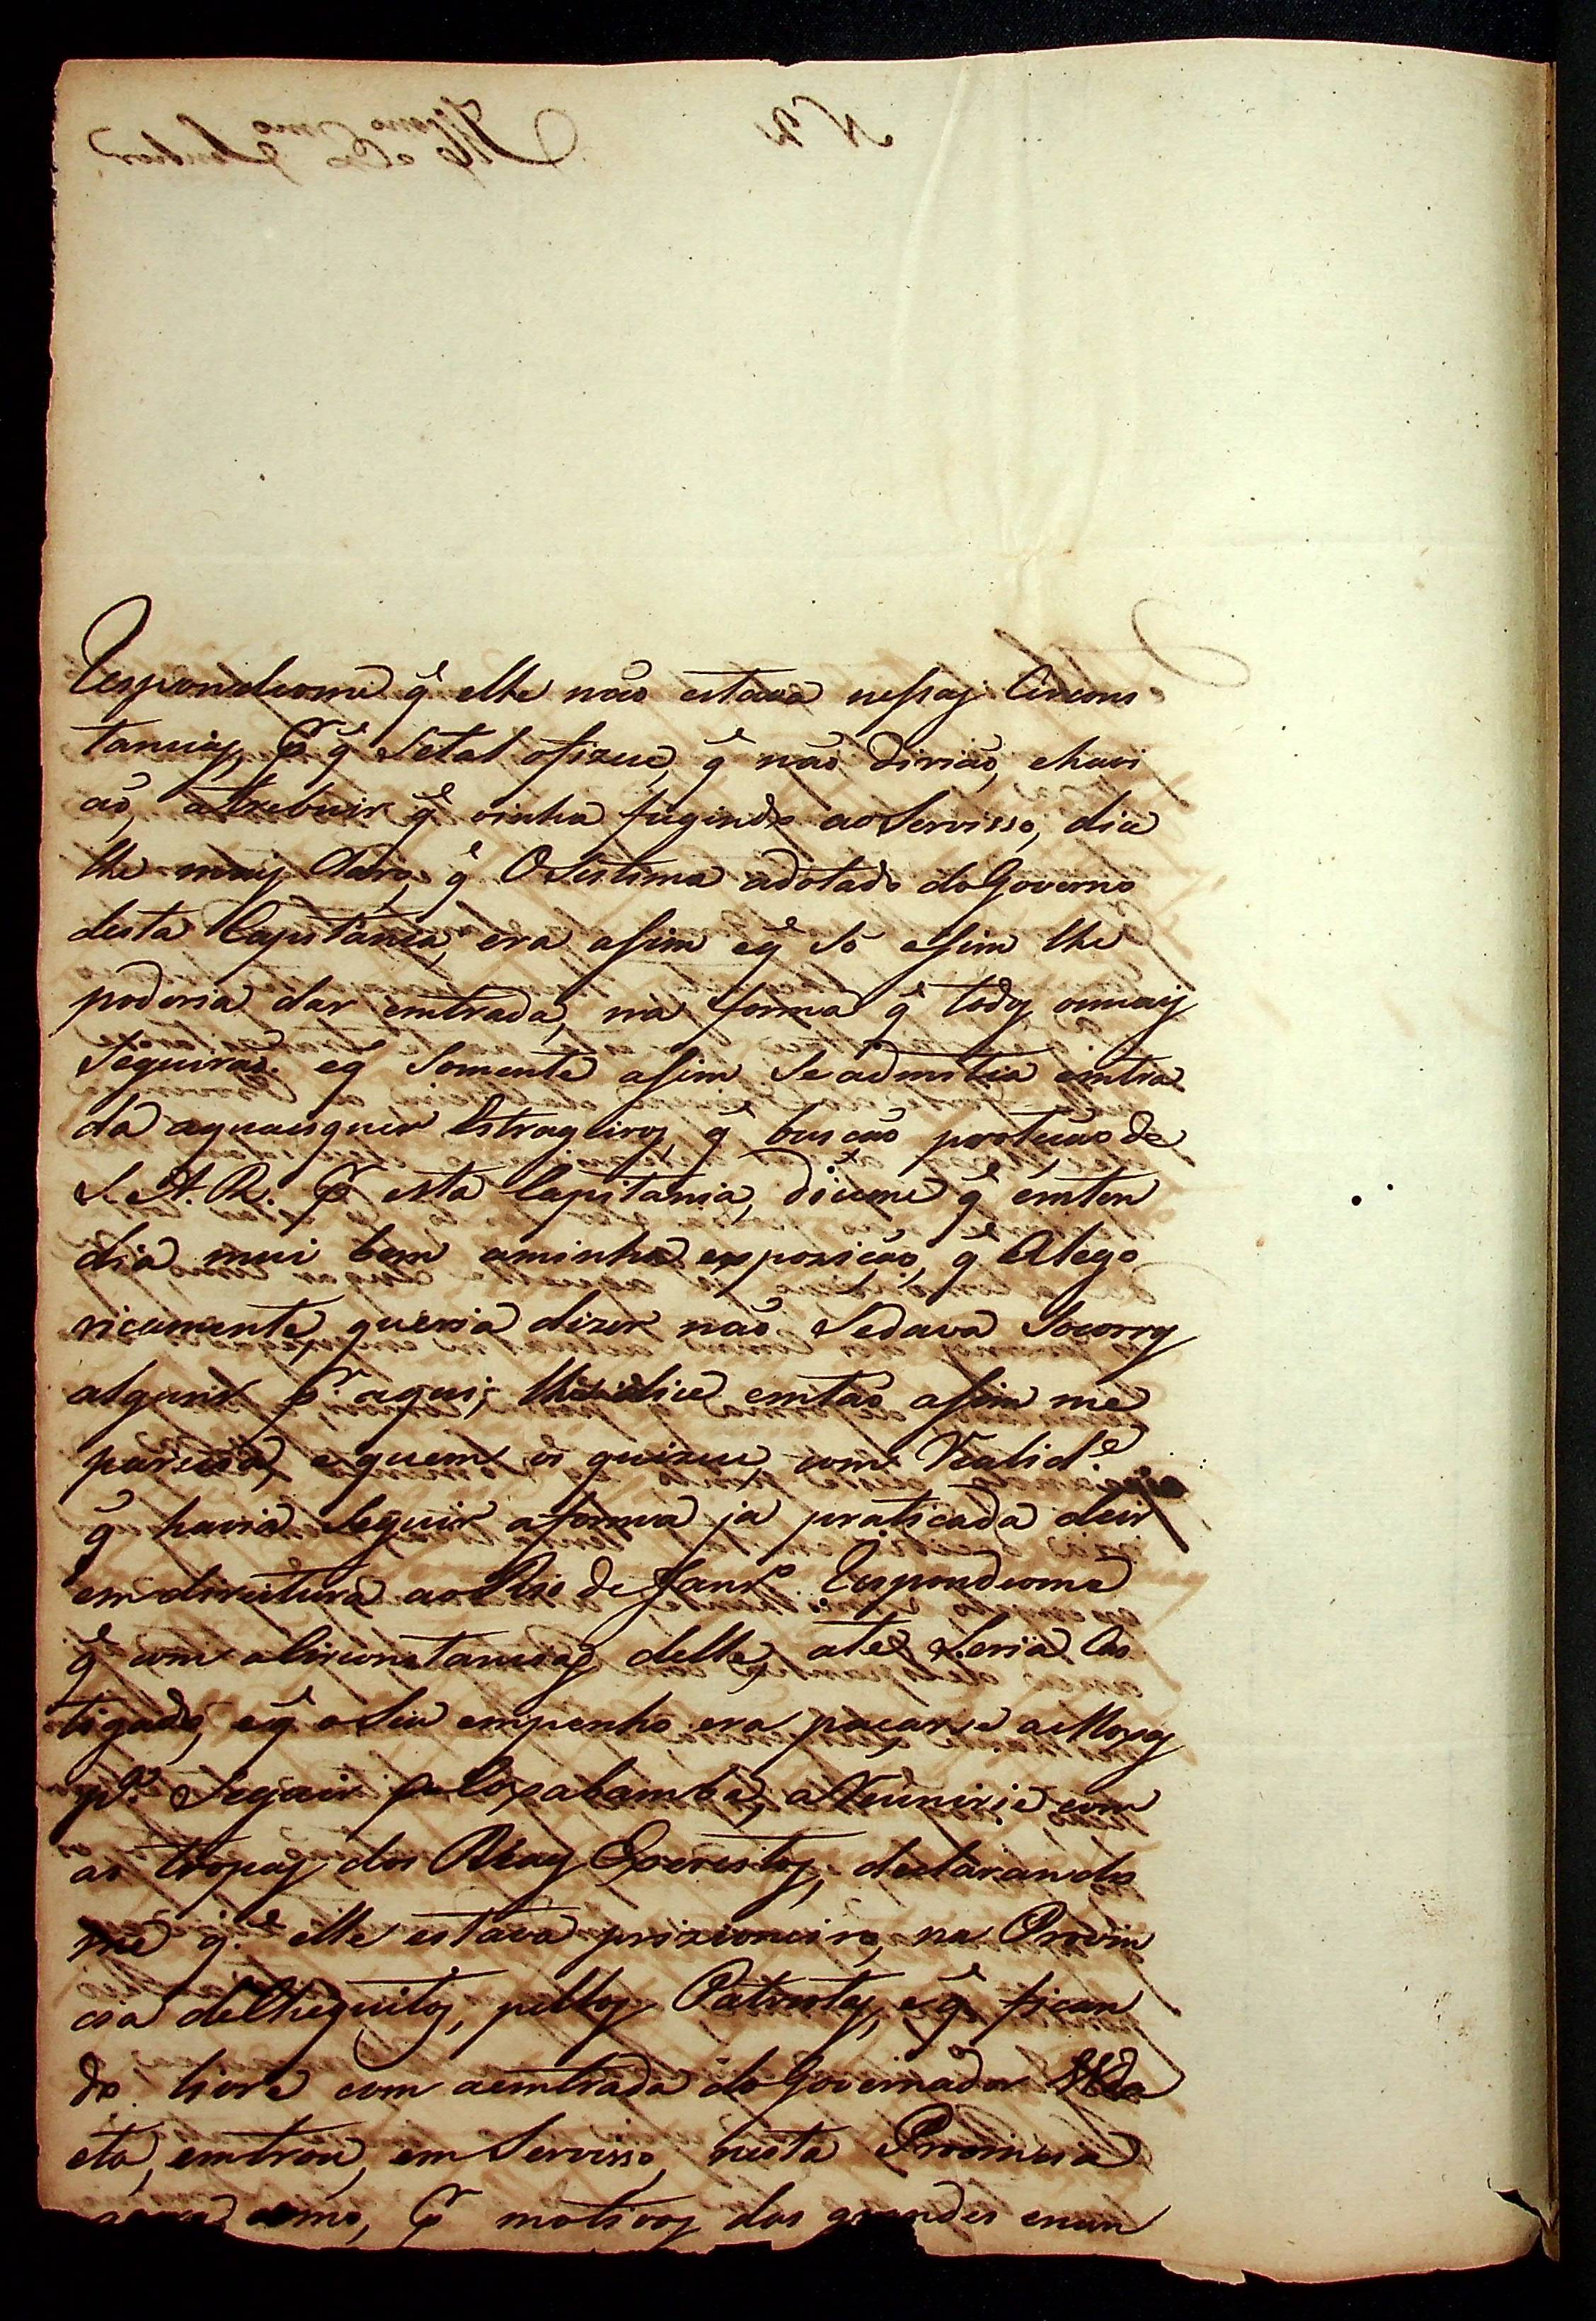 Respondeome q̃ elle não estava nessas Circons
tancias, p.r q̃ Setal ofizece, q̃ não dirião, ehavi
ão, atrebuir q̃ vinha fugindo aoServisso, dice
lhe mais Claro, q̃ OSistima adotado doGoverno
desta Capitania, era assim eq̃ só assim lhe
poderia dar emtrada, na forma q̃ todos omais
Seguirão. eq̃ Somente assim Seadmitia emtra
da aquaesquer Estrageiros, q̃ buscão proteção de
S. A. R. p.r esta Capitania, diceme q̃ emten
dia mui bem aminha expozição, q̃ Alego
ricamente queria dizer não Sedava Socorros
algum p.r aqui; lhe dice emtão assim me
parecia, e quem os quizece, com Realid.e
q̃ havia Seguir aforma ja praticada deir
emdireitura aoRio de Janr.o Respondeome
q̃ com aCirconstancias delle, até Seria Cas
tigado, eq̃ oSeu empenho era paçarse aMoxos
p.a Seguir a Coxabamba, aReunirse com
as tropas dos Reaes Exercitos, declarando
me q.e elle estava prizioneiro, na Provin
cia deChiquitos, pellos Patriotas, e q̃ fican
do livre com aemtrada do Governador Uda
eta, emtrou, em Servisso, nesta Provincia
como, p.r motivos das grandes enun